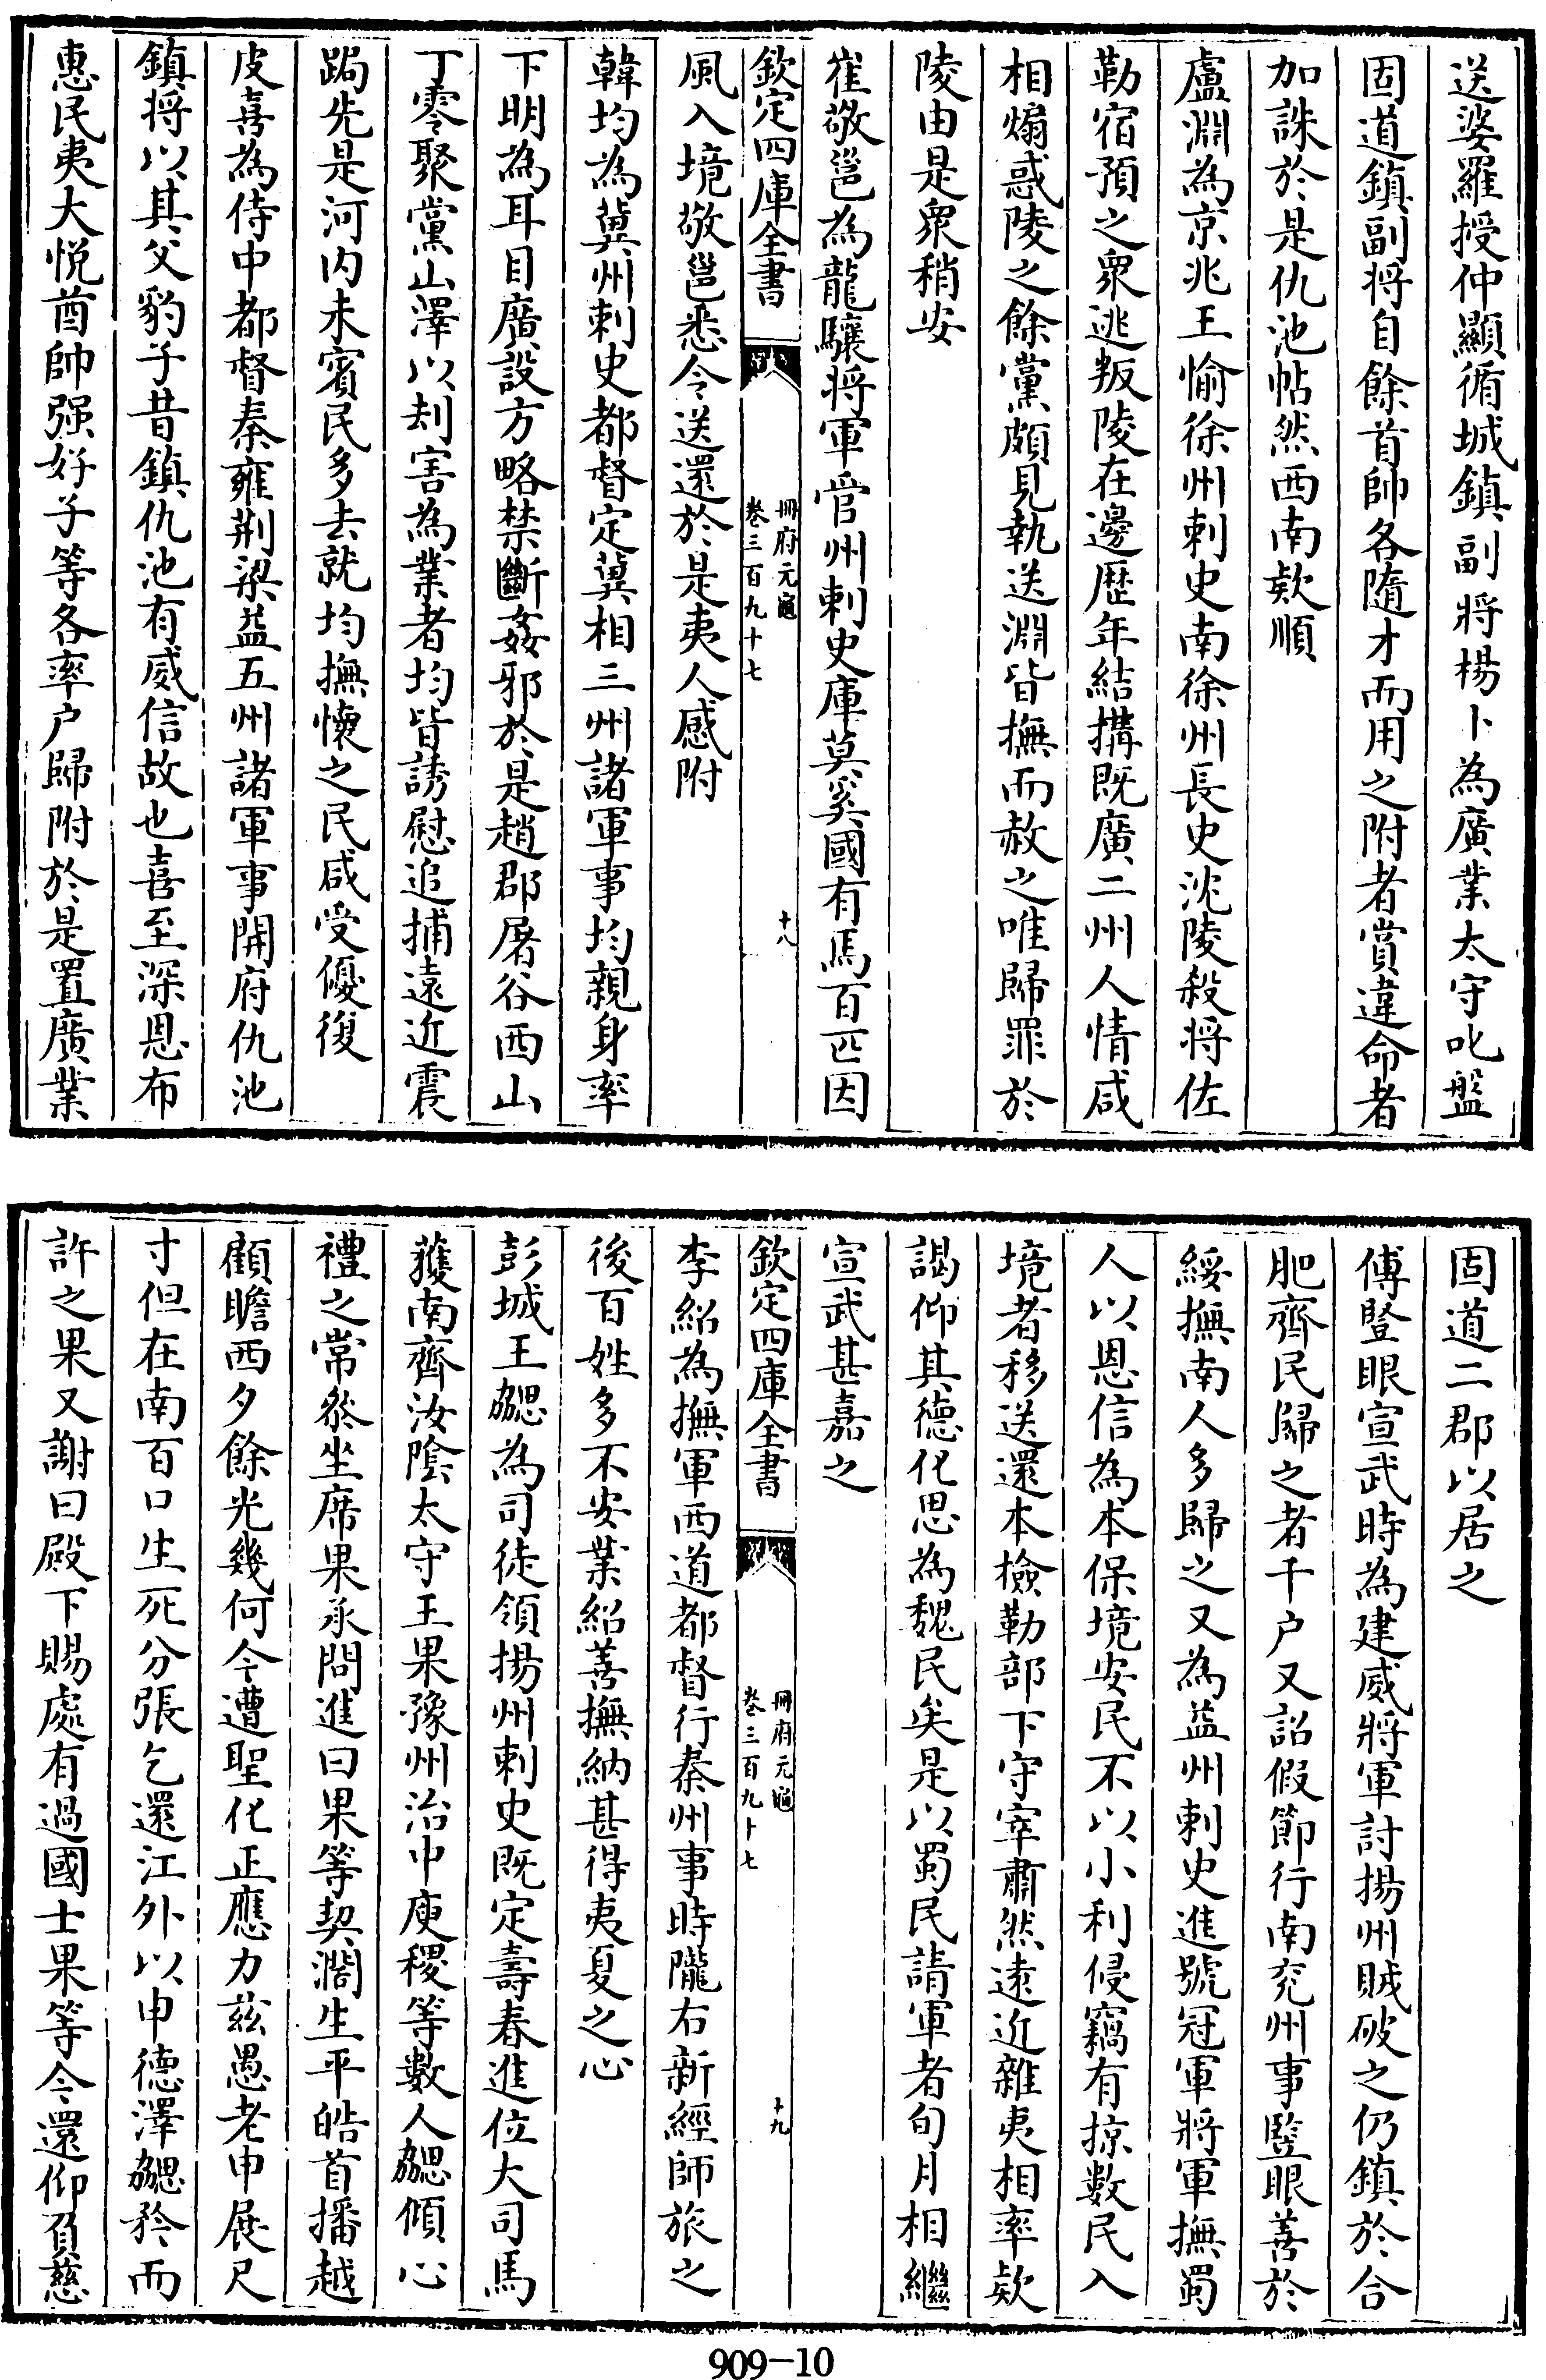 送婆羅授仲顯循城鎮副將楊卜為廣業太守叱盤
固道鎮副將自餘首帥各隨才而用之附者賞違命者
加誅於是仇池帖然西南欵順
盧淵為京兆王愉徐州刺史南徐州長史沈陵殺將佐
勒宿預之衆逃叛陵在邊歷年結搆既廣二州人情咸
相煽惑陵之餘黨頗見執送淵皆撫而赦之唯歸罪於
陵由是衆稍安
崔敬邕為龍驤將軍營州刺史庫莫奚國有馬百匹因
欽定四庫全書
冊府元龜
卷三百九十七
十八
風入境敬邕悉令送還於是夷人感附
韓均為冀州刺史都督定冀相三州諸軍事均親身率
下明為耳目廣設方略禁斷姦邪於是趙郡屠谷西山
丁零聚黨山澤以刦害為業者均皆誘慰追捕遠近震
跼先是河內未賓民多去就均撫懷之民咸受優復
皮喜為侍中都督秦雍荊梁益五州諸軍事開府仇池
鎮將以其父豹子昔鎮仇池有威信故也喜至深恩布
惠民夷大悅酋帥强好子等各率户歸附於是置廣業
固道二郡以居之
傅豎眼宣武時為建威將軍討揚州賊破之仍鎮於合
肥齊民歸之者千户又詔假節行南兖州事豎眼善於
綏撫南人多歸之又為益州刺史進號冠軍將軍撫蜀
人以恩信為本保境安民不以小利侵竊有掠數民入
境者移送還本檢勒部下守宰肅然遠近雜夷相率欵
謁仰其德化思為魏民矣是以蜀民請軍者旬月相繼
宣武甚嘉之
欽定四庫全書
冊府元龜
卷三百九十七
十九
李紹為撫軍西道都督行秦州事時隴右新經師旅之
後百姓多不安業紹善撫納甚得夷夏之心
彭城王勰為司徒領揚州刺史既定壽春進位大司馬
獲南齊汝陰太守王果豫州治中庾稷等數人勰傾心
禮之常叅坐席果承問進曰果等契濶生平皓首播越
顧瞻西夕餘光幾何今遭聖化正應力兹愚老申展尺
寸但在南百口生死分張乞還江外以申德澤勰矜而
許之果又謝曰殿下賜處有過國士果等今還仰負慈
909-10